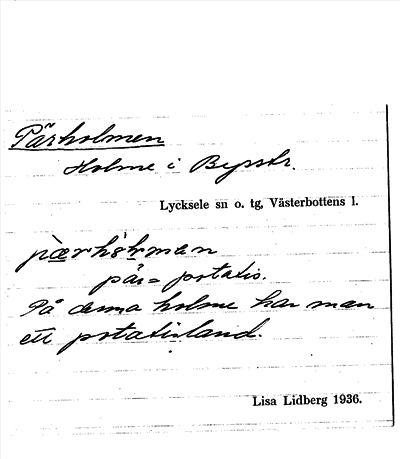 Pärholmen
Holme i Bysstr.
Lycksele sn o. tg, Västerbottens l.
pär = potatis.
På denna holme har man
ett potatisland.
Lisa Lidberg 1936.